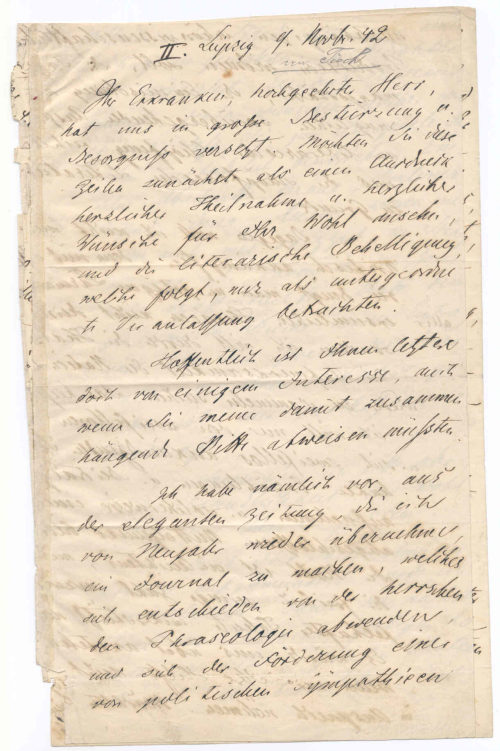 II. Leipzig 9. Novbr. 42
von Tieck
Ihr Erkranken, hochgeehrter Herr,
hat uns in große Bestürzung u.
Besorgniß versetzt. Möchten Sie diese
Zeilen zunächst als einen Ausdruck
herzlicher Theilnahme u. herzlicher
Wünsche für Ihr Wohl ansehen,
und die literarische Behelligung,
welche folgt, nur als untergeordne
te Veranlassung betrachten.
Hoffentlich ist Ihnen letztere
doch von einigem Interesse, auch
wenn Sie meine damit zusammen
hängende Bitte abweisen müßten.
Ich habe nämlich vor, aus
der eleganten Zeitung, die ich
von Neujahr wieder übernehme,
ein Journal zu machen, welches
sich entschieden von der herrschen
den Phraseologie abwenden,
und sich der Förderung eines
von politischen Sympathieen